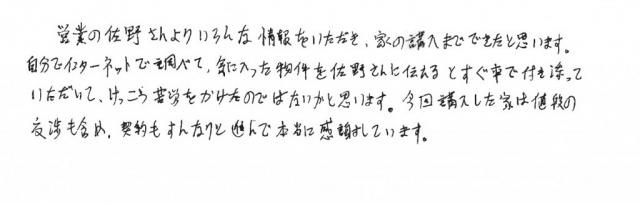 営業の佐野さんよりいろんな情報をいただき、家の購入までできたと思います。
自分でインターネットでも調べて、気に入った物件を佐野さんに伝えるとすぐ車で付き添って
いただいて、けっこう苦労をかけたのではないかと思います。今回購入した家は値段の
交渉も含め、契約もすんなりと進んで本当に感謝しています。